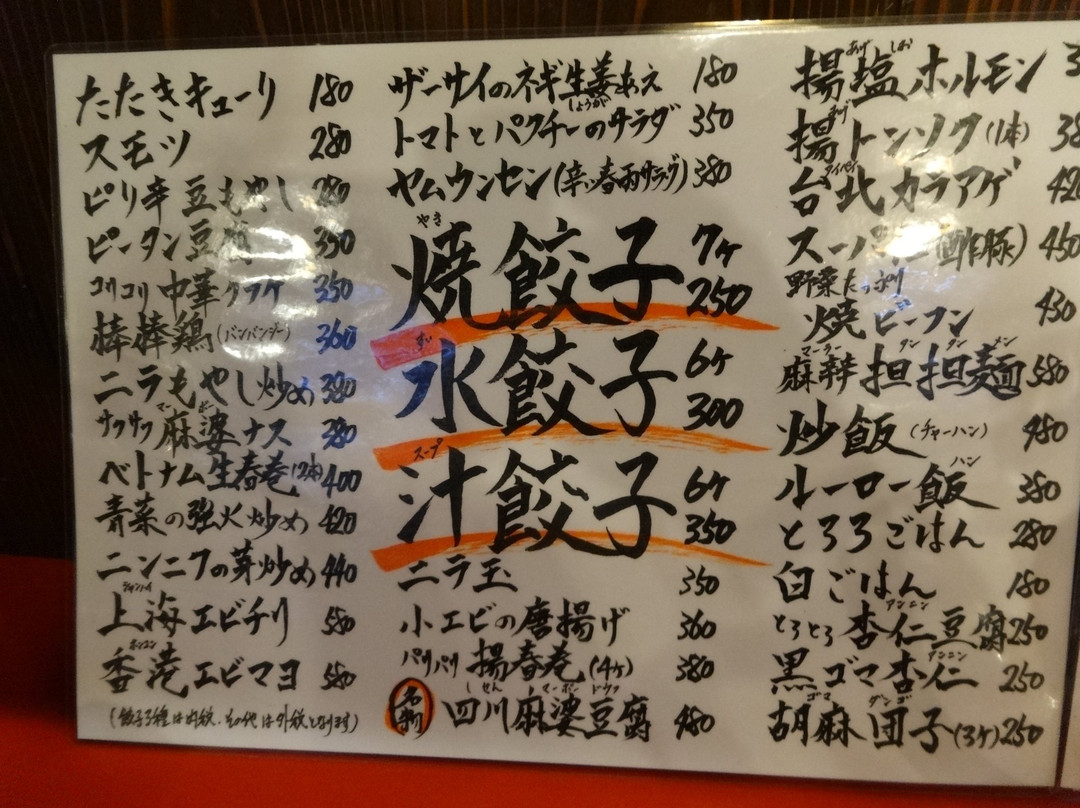 たたきキューリ 180
スモツ 280
ピリ辛豆もやし 280
ピータン豆腐 350
コリコリ中華クラゲ 350
棒棒鶏(バンバンジー) 360
ニラもやし炒め 380
サクサク麻婆ナス 380
マーボー
ベトナム生春巻(2本) 400
青菜の強火炒め 420
ニンニクの芽炒め 440
シャンハイ
上海エビチリ 550
ホンコン
香港エビマヨ 550
(餃子3種は内税、その他は外税となります)
ザーサイのネギ生姜あえ 180
しょうが
トマトとパクチーのサラダ 350
ヤムウンセン(辛い春雨サラダ) 380
やき
焼餃子 7ヶ 250
すい
水餃子 6ヶ 300
スープ
汁餃子 6ヶ 350
ニラ玉 350
小エビの唐揚げ 360
パリパリ揚春巻(4ヶ) 380
しせん マーボー ドウフ
名物 四川麻婆豆腐 480
あげ しお
揚塩ホルモン
あげ
揚トンソク(1本) 38
タイペイ
台北カラアゲ 420
スーパイコ(酢豚) 450
野菜たっぷり
焼ビーフン 430
マーラー タン タン メン
麻辣担担麺 580
炒飯(チャーハン) 480
ハン
ルーロー飯 380
とろろごはん 280
白ごはん 180
アンニン
とろとろ杏仁豆腐 250
アンニン
黒ゴマ杏仁 250
ゴマ ダンゴ
胡麻団子(3ヶ) 250